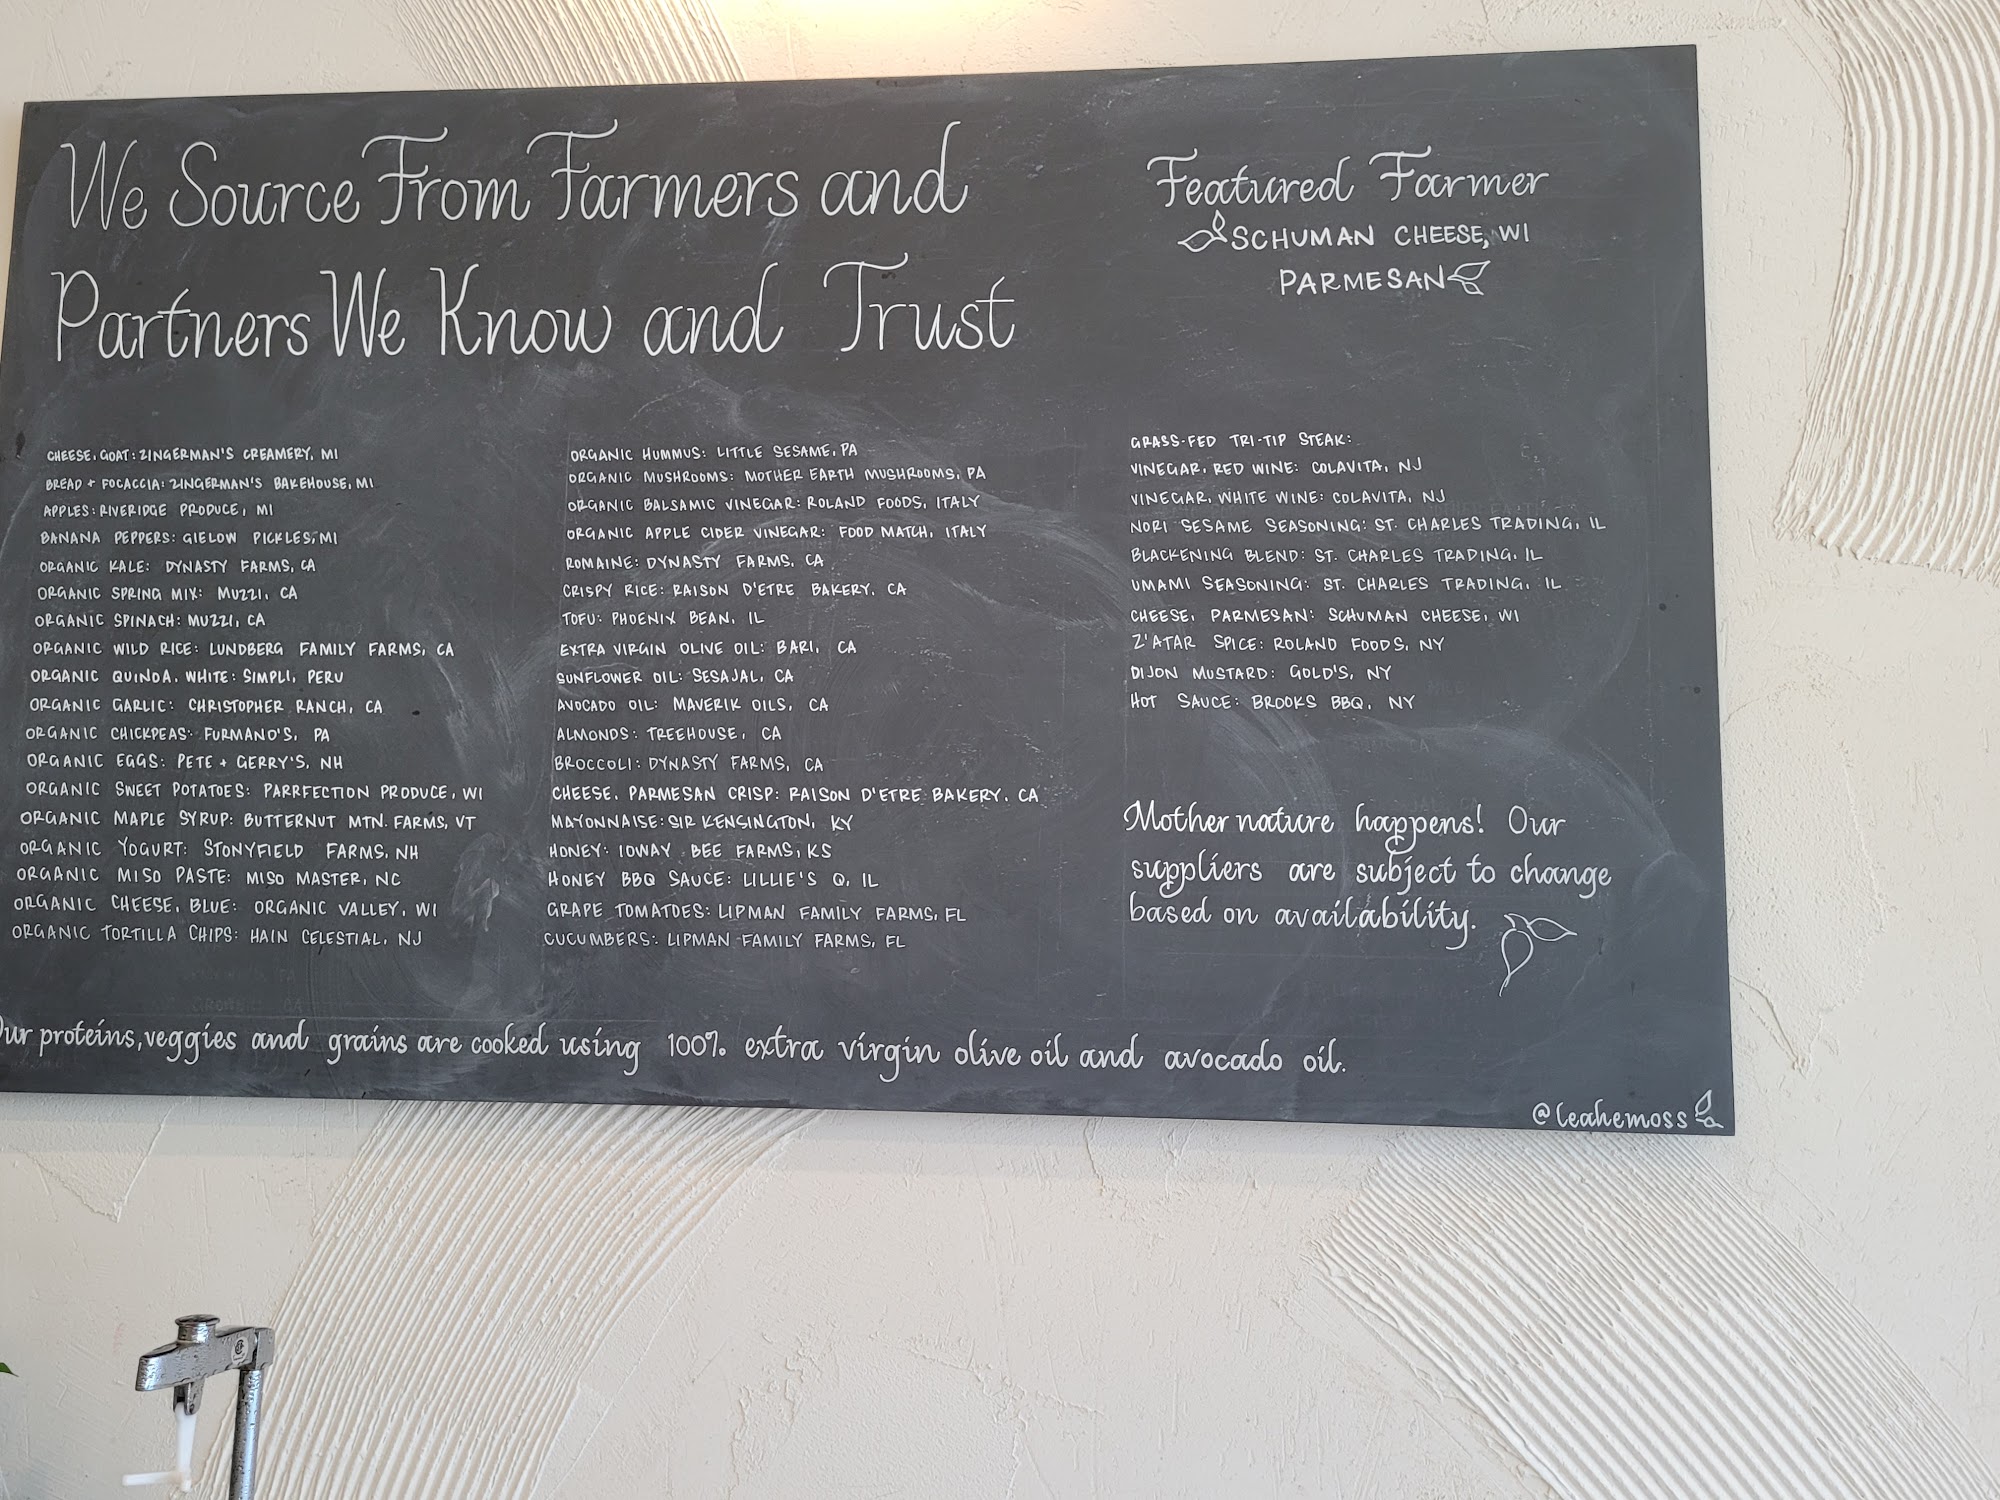 We Source From Farmers and
Partners We Know and Trust
Featured Farmer
SCHUMAN CHEESE, WI
PARMESAN
CHEESE, GOAT: ZINGERMAN'S CREAMERY, MI
BREAD + FOCACCIA: ZINGERMAN'S BAKEHOUSE, MI
APPLES: RIVERIDGE PRODUCE, MI
BANANA PEPPERS: GIELOW PICKLES, MI
ORGANIC KALE: DYNASTY FARMS, CA
ORGANIC SPRING MIX: MUZZI, CA
ORGANIC SPINACH: MUZZI, CA
ORGANIC WILD RICE: LUNDBERG FAMILY FARMS, CA
ORGANIC QUINOA, WHITE: SIMPLI, PERU
ORGANIC GARLIC: CHRISTOPHER RANCH, CA
ORGANIC CHICKPEAS: FURMANO'S, PA
ORGANIC EGGS: PETE + GERRY'S, NH
ORGANIC SWEET POTATOES: PARRFECTION PRODUCE, WI
ORGANIC MAPLE SYRUP: BUTTERNUT MTN. FARMS, VT
ORGANIC YOGURT: STONYFIELD FARMS, NH
ORGANIC MISO PASTE: MISO MASTER, NC
ORGANIC CHEESE, BLUE: ORGANIC VALLEY, WI
ORGANIC TORTILLA CHIPS: HAIN CELESTIAL, NJ
ORGANIC HUMMUS: LITTLE SESAME, PA
ORGANIC MUSHROOMS: MOTHER EARTH MUSHROOMS, PA
ORGANIC BALSAMIC VINEGAR: ROLAND FOODS, ITALY
ORGANIC APPLE CIDER VINEGAR: FOOD MATCH, ITALY
ROMAINE: DYNASTY FARMS, CA
CRISPY RICE: RAISON D'ETRE BAKERY, CA
TOFU: PHOENIX BEAN, IL
EXTRA VIRGIN OLIVE OIL: BARI, CA
SUNFLOWER OIL: SESAJAL, CA
AVOCADO OIL: MAVERIK OILS, CA
ALMONDS: TREEHOUSE, CA
BROCCOLI: DYNASTY FARMS, CA
CHEESE, PARMESAN CRISP: RAISON D'ETRE BAKERY, CA
MAYONNAISE: SIR KENSINGTON, KY
HONEY: IOWAY BEE FARMS, KS
HONEY BBQ SAUCE: LILLIE'S Q, IL
GRAPE TOMATOES: LIPMAN FAMILY FARMS, FL
CUCUMBERS: LIPMAN FAMILY FARMS, FL
GRASS-FED TRI-TIP STEAK:
VINEGAR, RED WINE: COLAVITA, NJ
VINEGAR, WHITE WINE: COLAVITA, NJ
NORI SESAME SEASONING: ST. CHARLES TRADING, IL
BLACKENING BLEND: ST. CHARLES TRADING, IL
UMAMI SEASONING: ST. CHARLES TRADING, IL
CHEESE, PARMESAN: SCHUMAN CHEESE, WI
Z'ATAR SPICE: ROLAND FOODS, NY
DIJON MUSTARD: GOLD'S, NY
HOT SAUCE: BROOKS BBQ, NY
Mother nature happens! Our
suppliers are subject to change
based on availability.
Our proteins, veggies and grains are cooked using 100% extra virgin olive oil and avocado oil.
@leahemoss